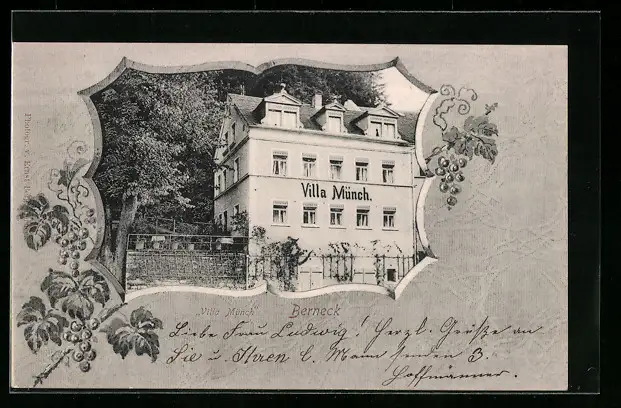 Villa Münch.
"Villa Münch" Berneck
Liebe Frau Ludwig! Herzl. Grüße an
Sie u. Ihren l. Mann senden 3
Hoffmänner.
Photogr. v.